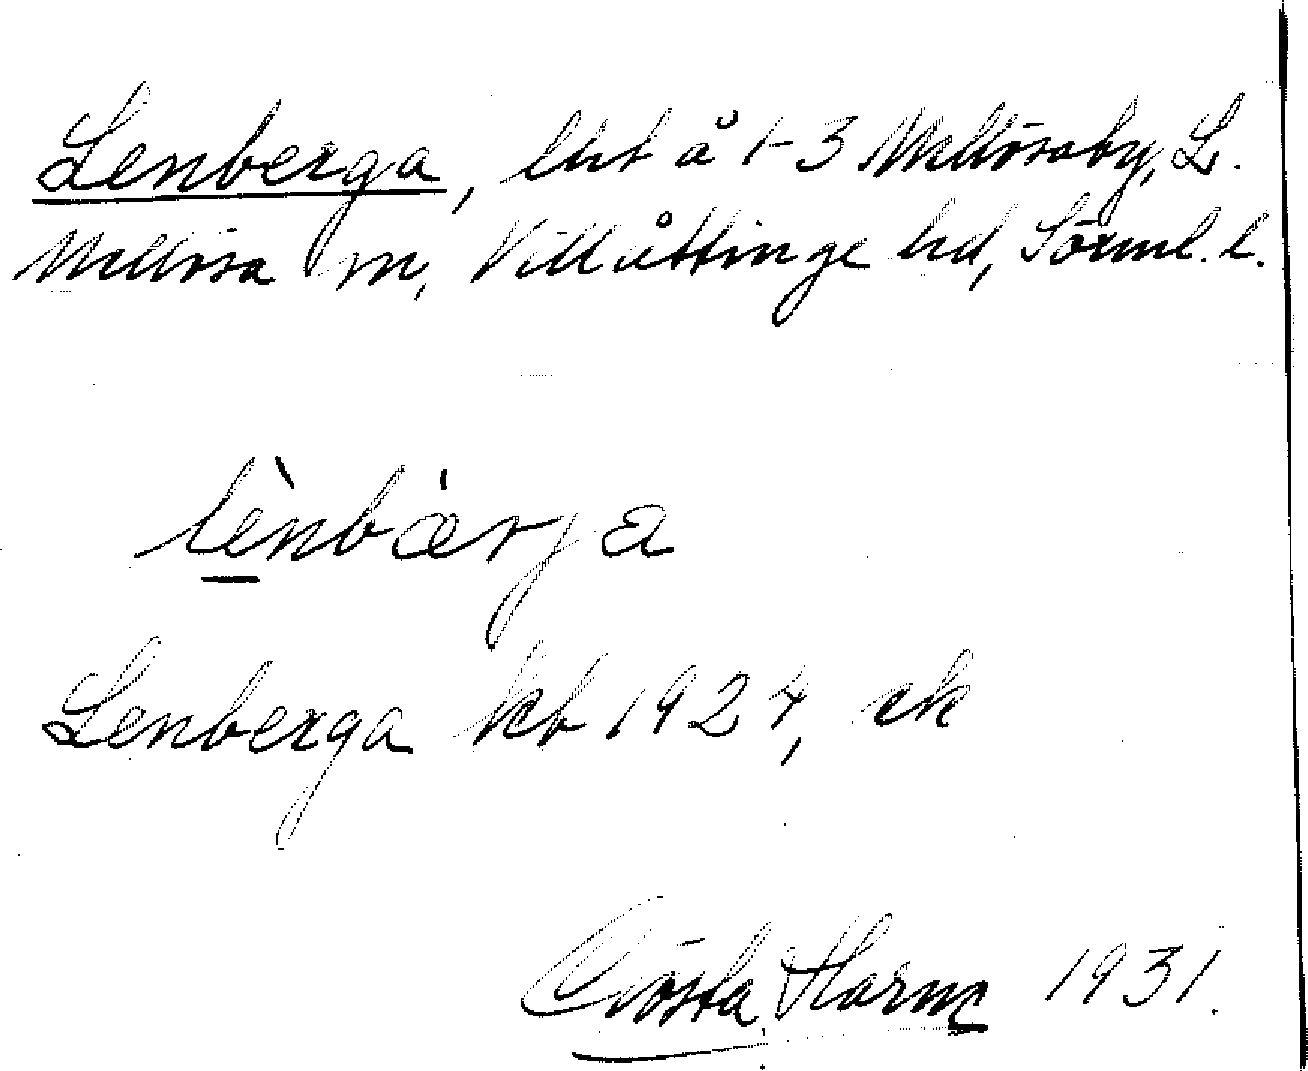 Lenberga, lht å 1-3 Mellösaby, L.
Mellösa sn, Villåttinge hd, Sörml. l.
lènbärja
Lenberga kb 1924, ek
Gösta Harm 1931.